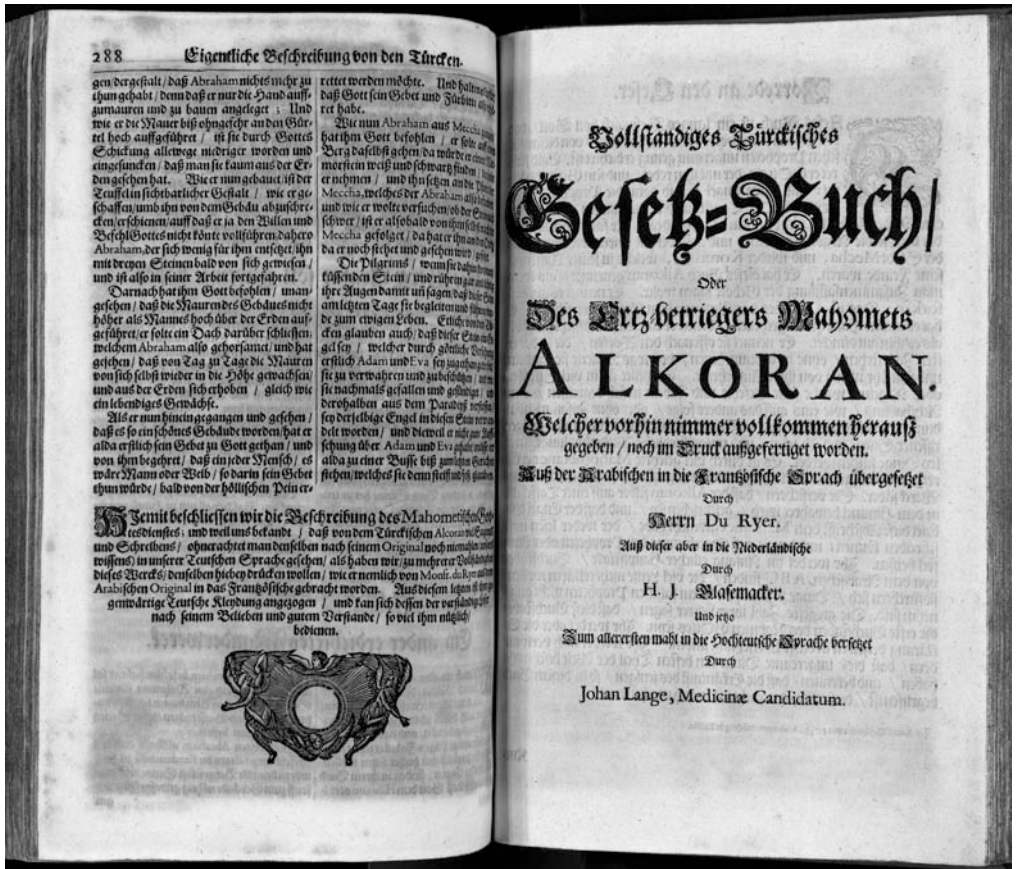 288 Eigentliche Beschreibung von den Türcken.
gen dergestalt / daß Abraham nichts mehr zu
thun gehabt / denn daß er nur die Hand auff-
zumauren und zu bauen angeleget ; Und
wie er die Mauer biß ohngefehr an den Gür-
tel hoch auffgeführet / ist sie durch Gottes
Schickung allewege niedriger worden und
eingesuncken / daß man sie kaum aus der Er-
den gesehen hat. Wie er nun gebauet / ist der
Teuffel in sichtbarlicher Gestalt / wie er ge-
schaffen / umb ihn von dem Gebäu abzuschre-
cken / erschienen / auff daß er ja den Willen und
Befehl Gottes nicht könte vollführen / dahero
Abraham, der sich wenig für ihm entsetzet / ihn
mit dreyen Steinen bald von sich gewiesen /
und ist also in seiner Arbeit fortgefahren.
Darnach hat ihm Gott befohlen / unan-
gesehen / daß die Mauren des Gebäues nicht
höher als Mannes hoch über der Erden auff-
geführet / er solte ein Dach darüber schliessen;
welchem Abraham also gehorsamet / und hat
gesehen / daß von Tag zu Tage die Mauren
von sich selbs wieder in die Höhe gewachsen /
und aus der Erden sich erhoben / gleich wie
ein lebendiges Gewächse.
Als er nun hinein gegangen und gesehen /
daß es so ein schönes Gebäude worden / hat er
alda erstlich sein Gebet zu Gott gethan / und
von ihm begehret / daß ein jeder Mensch / es
wäre Mann oder Weib / so darin sein Gebet
thun würde / bald von der höllischen Pein er-
rettet werden möchte. Und
daß Gott sein Gebet und Fürbitt
ret habe.
Wie nun Abraham aus Meccha
hat ihm Gott befohlen / er solte auff
Berg daselbst gehen / da würde er einen
morstein weiß und schwartz finden /
er nehmen / und ihn setzen an die
Meccha, welches der Abraham also
und wie er wolte versuchen / ob der Stein
schwer / ist er alsobald von ihm selbst
Meccha gefolget / da hat er ihn an den
da er noch stehet und gesehen wird
Die Pilgrims / wenn sie dahin
küssen den Stein / und rühren
ihre Augen damit an sagen / daß dieser Stein
am letzten Tage sie begleiten und
de zum ewigen Leben. Etliche von den
cken glauben auch / daß dieser Stein ein
gel sey / welcher durch göttliche
erstlich Adam und Eva sey zugethan
sie zu verwahren und zu beschützen /
sie nachmals gefallen und gesündiget /
derohalben aus dem Paradeyß verstossen /
sey derselbige Engel in diesen Stein verwan-
delt worden / und dieweil er nicht gute Auff-
sehung über Adam und Eva gehabt / müsse er
alda zu einer Busse biß zum letzten Gericht
stehen / welches sie denn steiff und fest glauben.
HIemit beschliessen wir die Beschreibung des Mahometischen Got-
tesdienstes; und weil uns bekandt / daß von dem Türckischen Alcoran viel Sagens
und Schreibens / ohnerachtet man denselben nach seinem Original noch niemahlen
wissens) in unserer Teutschen Sprache gesehen / als haben wir / zu mehrerer Vollständigkeit
dieses Wercks / denselben hiebey drücken wollen / wie er nemlich von Monsr. du Ryer aus dem
Arabischen Original in das Frantzösische gebracht worden. Aus diesem letzten ist ihm ge-
genwärtige Teutsche Kleydung angezogen / und kan sich dessen der verständige Leser
nach seinem Belieben und gutem Verstande / so viel ihm nützlich /
bedienen.
Vollständiges Türckisches
Gesetz=Buch /
Oder
Des Ertz-betriegers Mahomets
ALKORAN.
Welcher vorhin nimmer vollkommen herauß
gegeben / noch im Druck außgefertiget worden.
Auß der Arabischen in die Frantzösische Sprach übergesetzet
Durch
Herrn Du Ryer.
Auß dieser aber in die Niederländische
Durch
H. J. Glasemacker.
Und jetzo
Zum allerersten mahl in die Hochteutsche Sprache versetzet
Durch
Johan Lange, Medicinæ Candidatum.